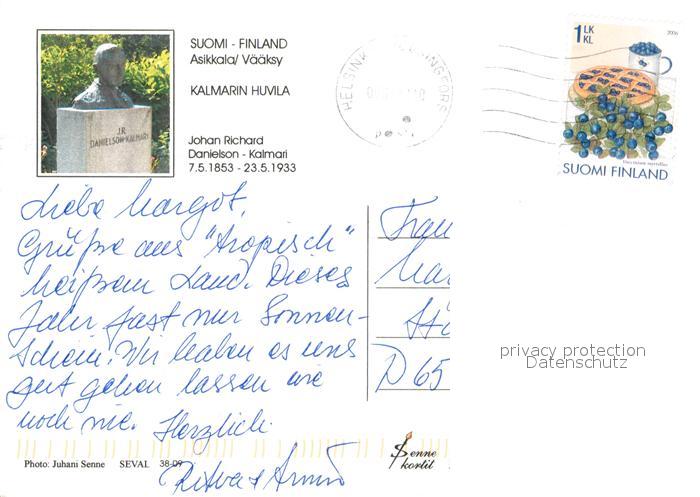 SUOMI - FINLAND
Asikkala/ Vääksy
KALMARIN HUVILA
J.R.
DANIELSON-KALMARI
Johan Richard
Danielson - Kalmari
7.5.1853 - 23.5.1933
HELSINKI HELSINGFORS
1 LK
KL
2006
SUOMI FINLAND
Liebe Margot,
Grüße aus "tropisch"
heißem Land. Dieses
Jahr fast nur Sonnen-
schein. Wir haben es uns
gut gehen lassen wie
noch nie. Herzlich
Ritva + Armo
Frau
Mar
D 65
privacy protection
Datenschutz
Senne
kortit
Photo: Juhani Senne SEVAL 38-09